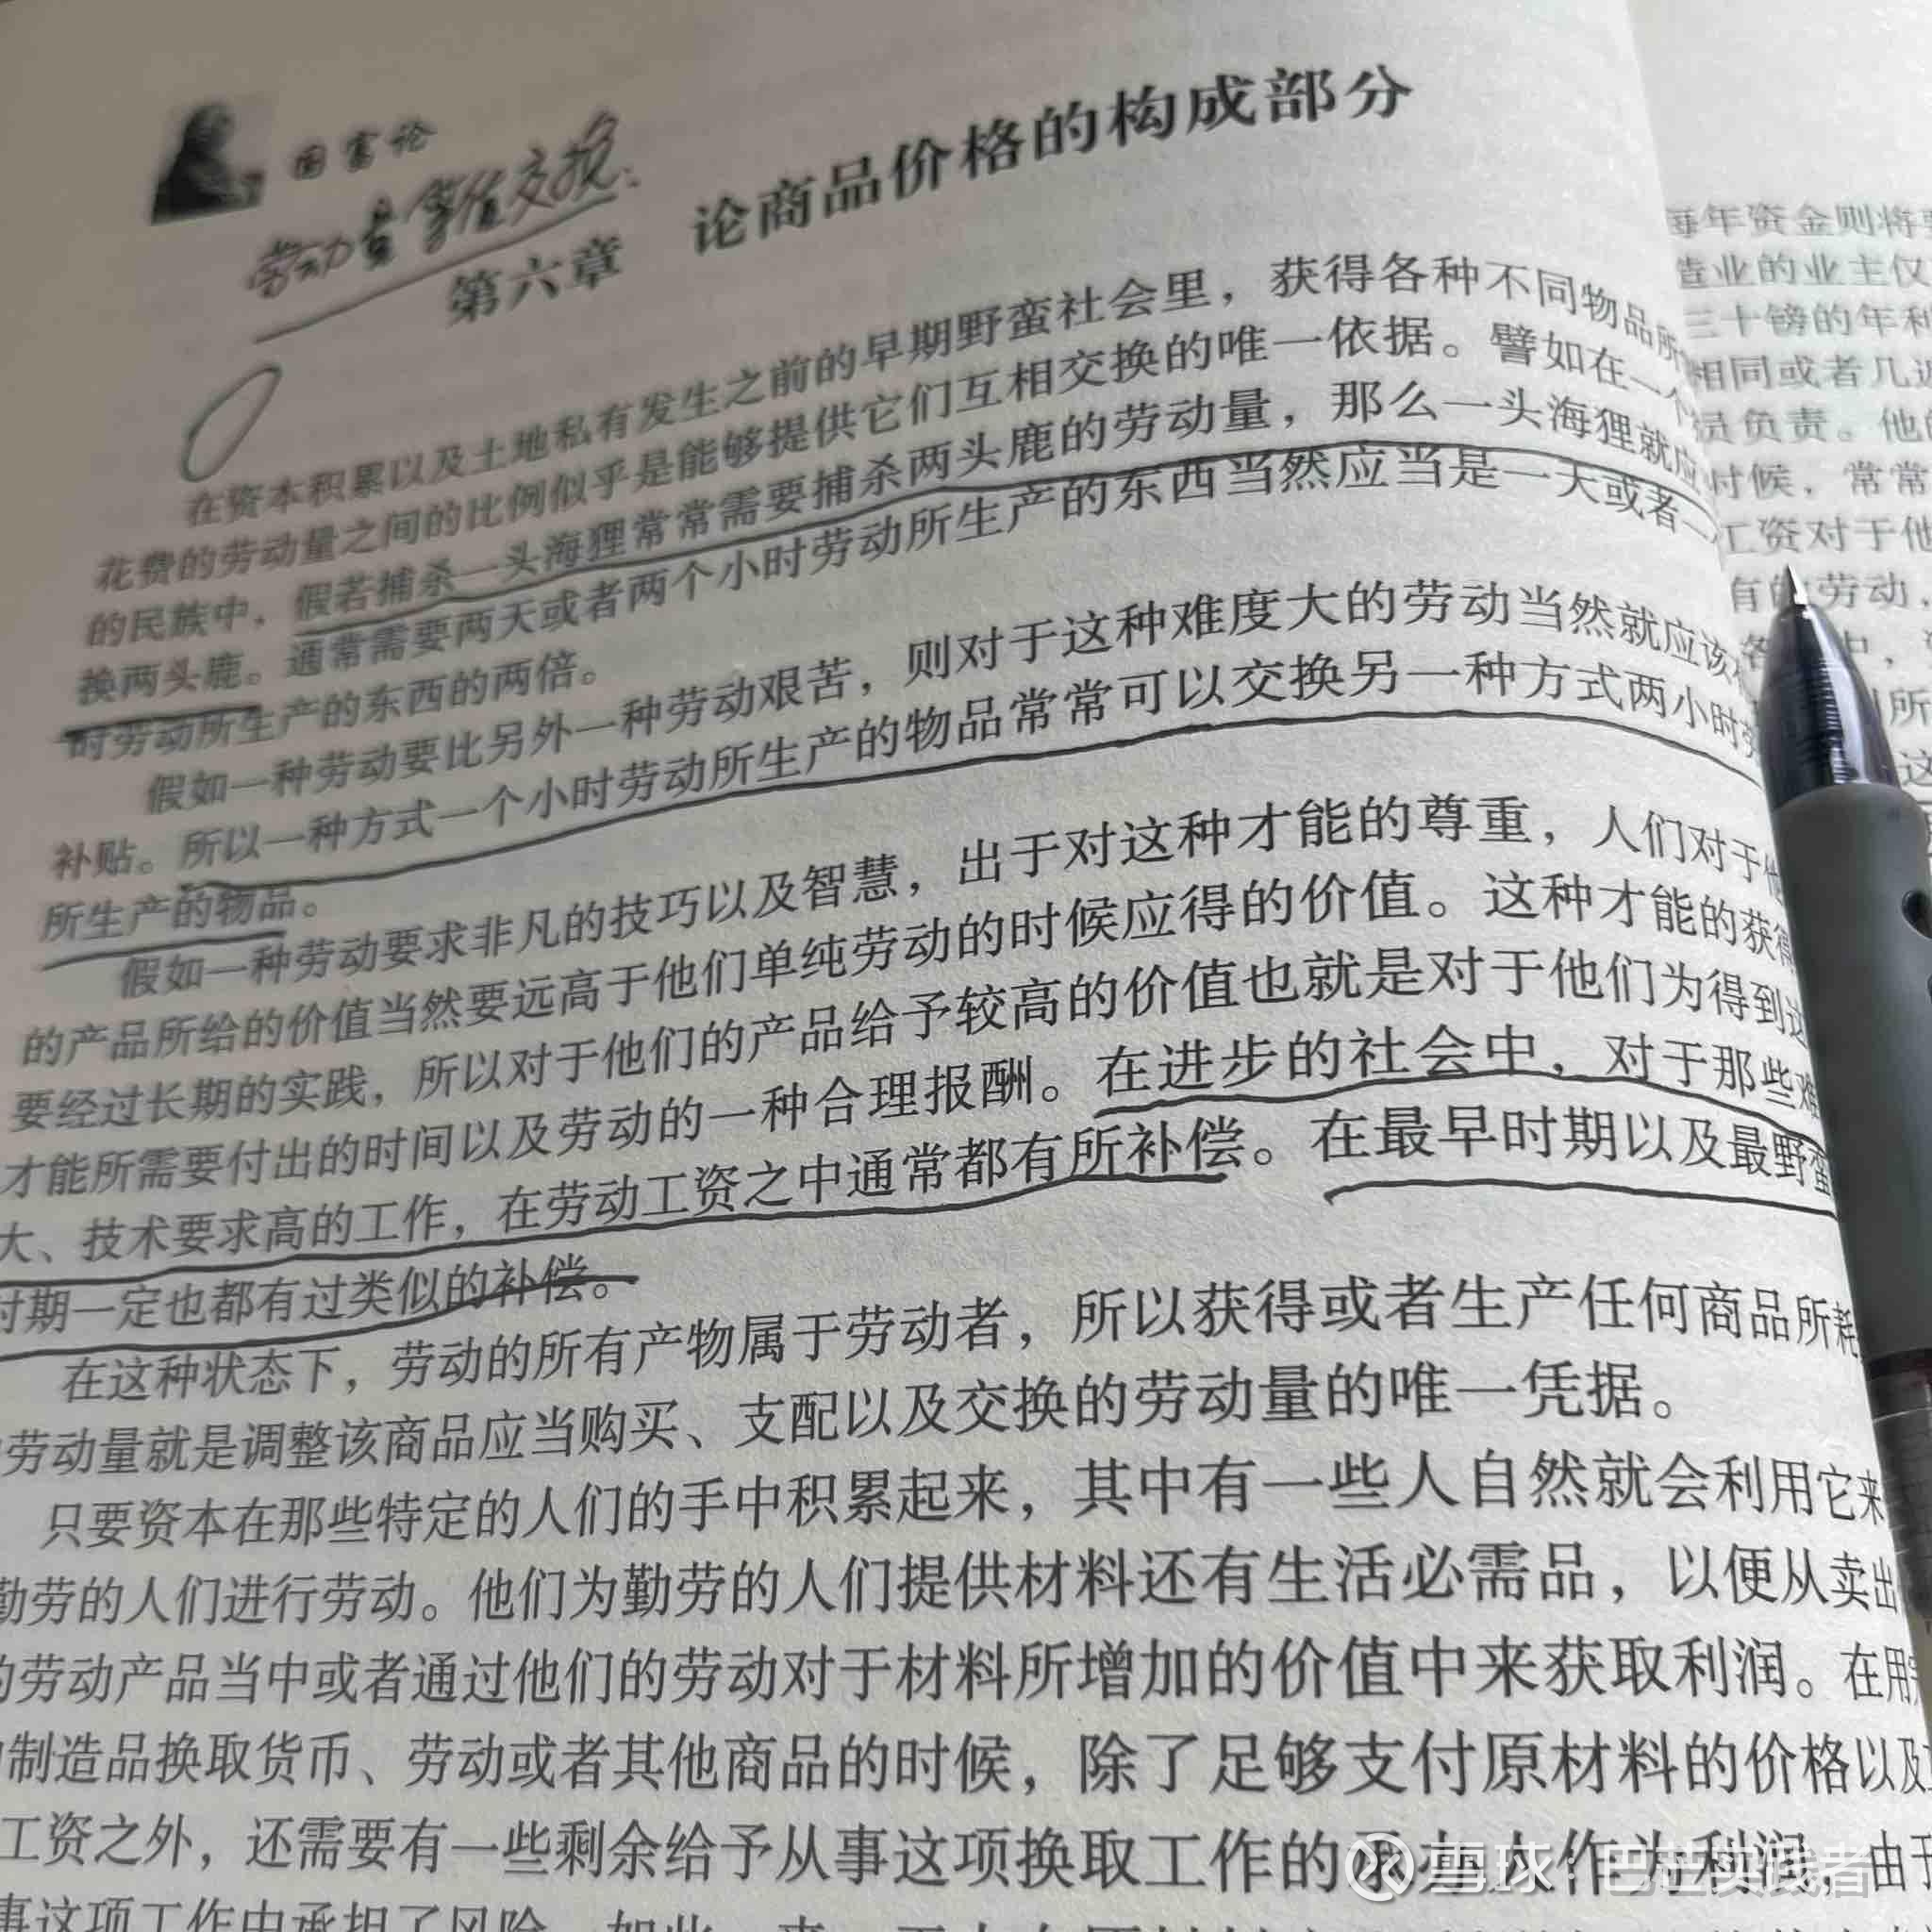 国富论
劳动量等值交换.
第六章 论商品价格的构成部分
在资本积累以及土地私有发生之前的早期野蛮社会里，获得各种不同物品所
花费的劳动量之间的比例似乎是能够提供它们互相交换的唯一依据。譬如在一个
的民族中，假若捕杀一头海狸常常需要捕杀两头鹿的劳动量，那么一头海狸就应
换两头鹿。通常需要两天或者两个小时劳动所生产的东西当然应当是一天或者一
时劳动所生产的东西的两倍。
假如一种劳动要比另外一种劳动艰苦，则对于这种难度大的劳动当然就应该
补贴。所以一种方式一个小时劳动所生产的物品常常可以交换另一种方式两小时劳
所生产的物品。
假如一种劳动要求非凡的技巧以及智慧，出于对这种才能的尊重，人们对于他
的产品所给的价值当然要远高于他们单纯劳动的时候应得的价值。这种才能的获得
要经过长期的实践，所以对于他们的产品给予较高的价值也就是对于他们为得到这
才能所需要付出的时间以及劳动的一种合理报酬。在进步的社会中，对于那些难
大、技术要求高的工作，在劳动工资之中通常都有所补偿。在最早时期以及最野蛮
时期一定也都有过类似的补偿。
在这种状态下，劳动的所有产物属于劳动者，所以获得或者生产任何商品所耗
劳动量就是调整该商品应当购买、支配以及交换的劳动量的唯一凭据。
只要资本在那些特定的人们的手中积累起来，其中有一些人自然就会利用它来
勤劳的人们进行劳动。他们为勤劳的人们提供材料还有生活必需品，以便从卖出
的劳动产品当中或者通过他们的劳动对于材料所增加的价值中来获取利润。在用
制造品换取货币、劳动或者其他商品的时候，除了足够支付原材料的价格以及
工资之外，还需要有一些剩余给予从事这项换取工作的
作为利润，由于
事这项工作中承担了风险
每年资金则将
造业的业主仅
三十镑的年利
相同或者几近
员负责。他
时候，常常
工资对于他
有的劳动，
中，
所
这
雪球：巴芒实践者